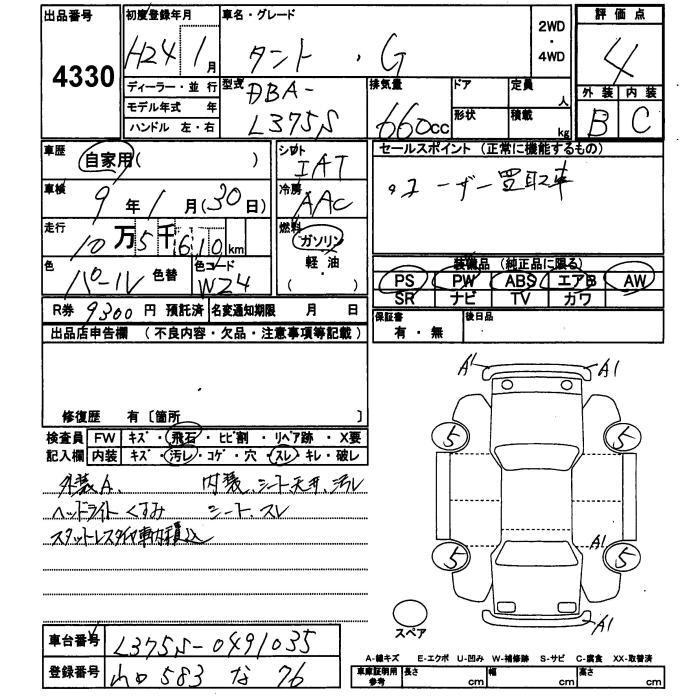 出品番号 4330
初度登録年月 H24 1月
車名・グレード タント・G
2WD・4WD
評価点 4
外装 B 内装 C
ディーラー・並行
モデル年式 年
ハンドル 左・右
型式 DBA-L375S
排気量 660cc
ドア
形状
定員 人
積載 kg
車歴 自家用( )
シフト IAT
車検 9年1月(30日)
冷房 AAC
走行 10万5千610km
燃料 ガソリン 軽・油 ( )
色 パール 色替 色コード W24
セールスポイント (正常に機能するもの)
・ユーザー買取車
装備品 (純正品に限る)
PS PW ABS エアB AW
SR ナビ TV カワ
R券 9300円 預託済 名変通知期限 月 日
保証書 有・無 後日品
出品店申告欄 (不良内容・欠品・注意事項等記載)
修復歴 有〔箇所 〕
検査員記入欄
FW キズ・飛石・ヒビ割・リペア跡・X要
内装 キズ・汚レ・コゲ・穴・スレ・キレ・破レ
外装A、 内装、シート天井、汚レ
ヘッドライトくすみ シート、スレ
スタットレスタイヤ車内積込
A1 A1
5 5
A1
5 5
A1
スペア
A-線キズ E-エクボ U-凹み W-補修跡 S-サビ C-腐食 XX-取替済
車台番号 L375S-0491035
登録番号 山口 583 な 76
車庫証明用参考 長さ cm 幅 cm 高さ cm